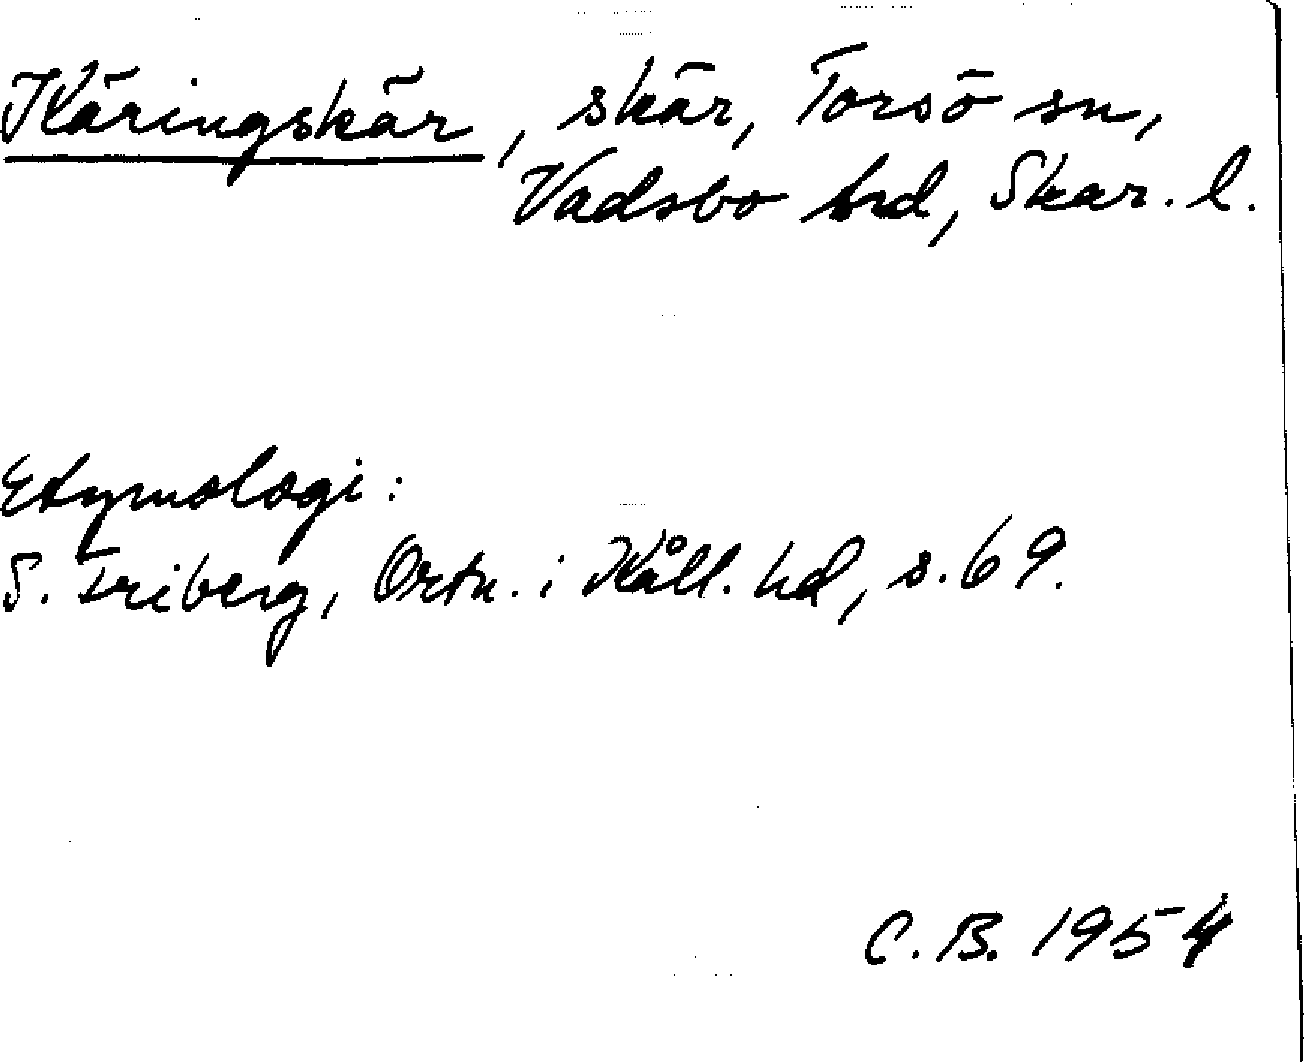 Käringskär, skär, Torsö sn,
Vadsbo hd, Skar. l.
Etymologi:
S. Friberg, Ortn. i Kåll. hd, s. 69.
C. B. 1954